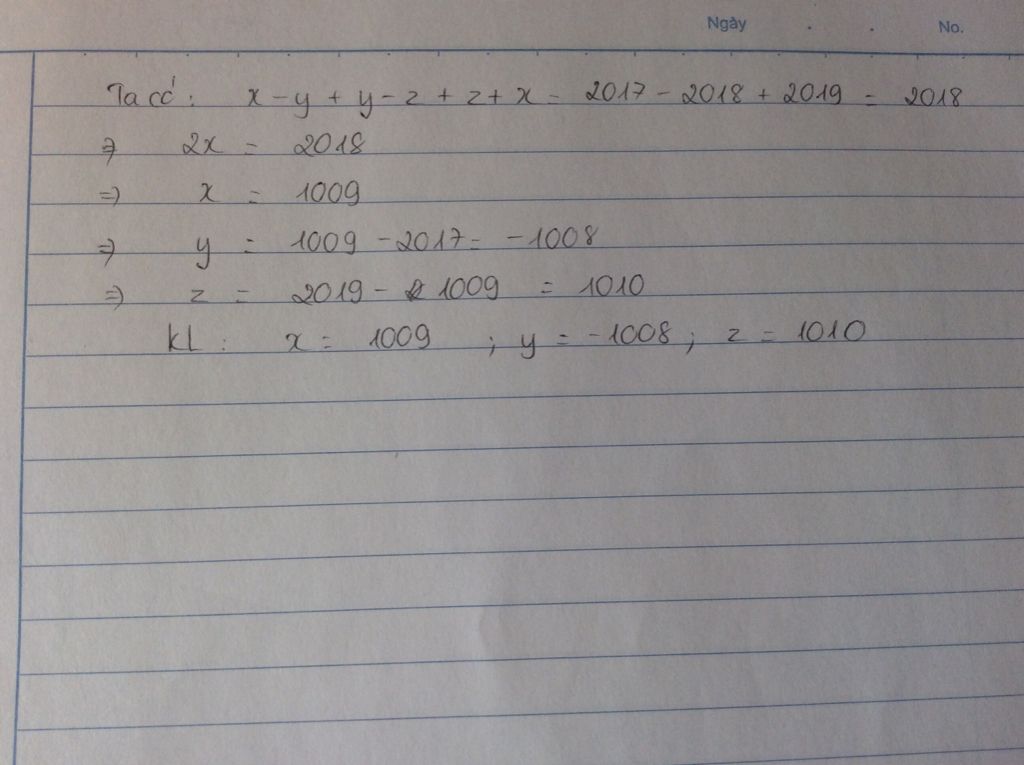 Ngày . . No.
Ta có: x - y + y - z + z + x = 2017 - 2018 + 2019 = 2018
=> 2x = 2018
=> x = 1009
=> y = 1009 - 2017 = -1008
=> z = 2019 - 1009 = 1010
kl: x = 1009 ; y = -1008 ; z = 1010